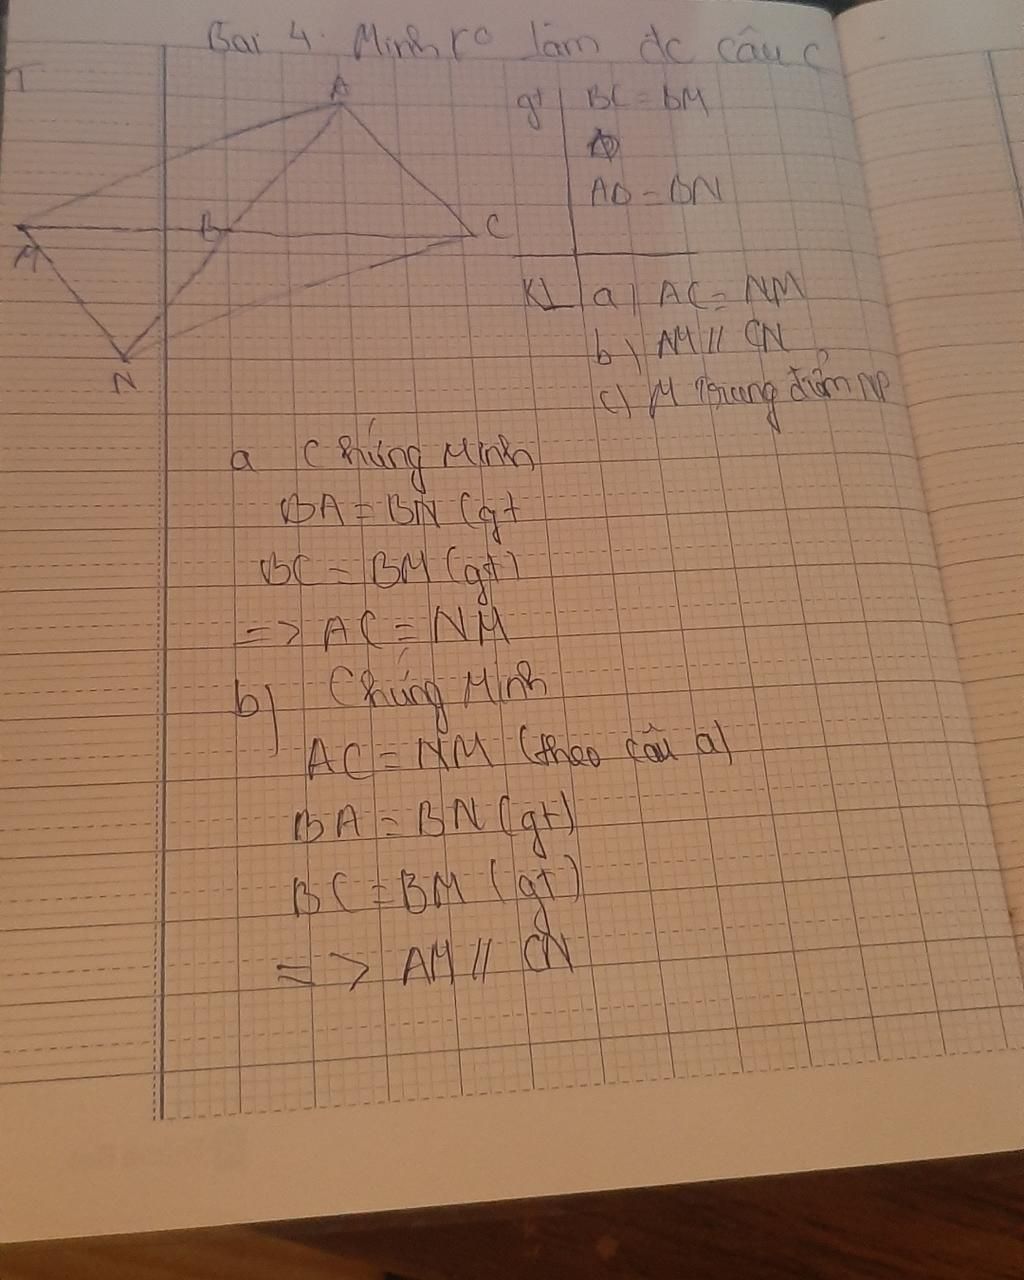 Bài 4. Mình ko làm đc câu c
T
A
M
B
C
N
gt BC = BM
AB = BN
Kl a) AC = NM
b) AM // CN
c) M trung điểm NP
a Chứng Minh
BA = BN (gt
BC = BM (gt)
=> AC = NM
b) Chứng Minh
AC = NM (theo câu a)
BA = BN (gt)
BC = BM (gt)
=> AM // CN